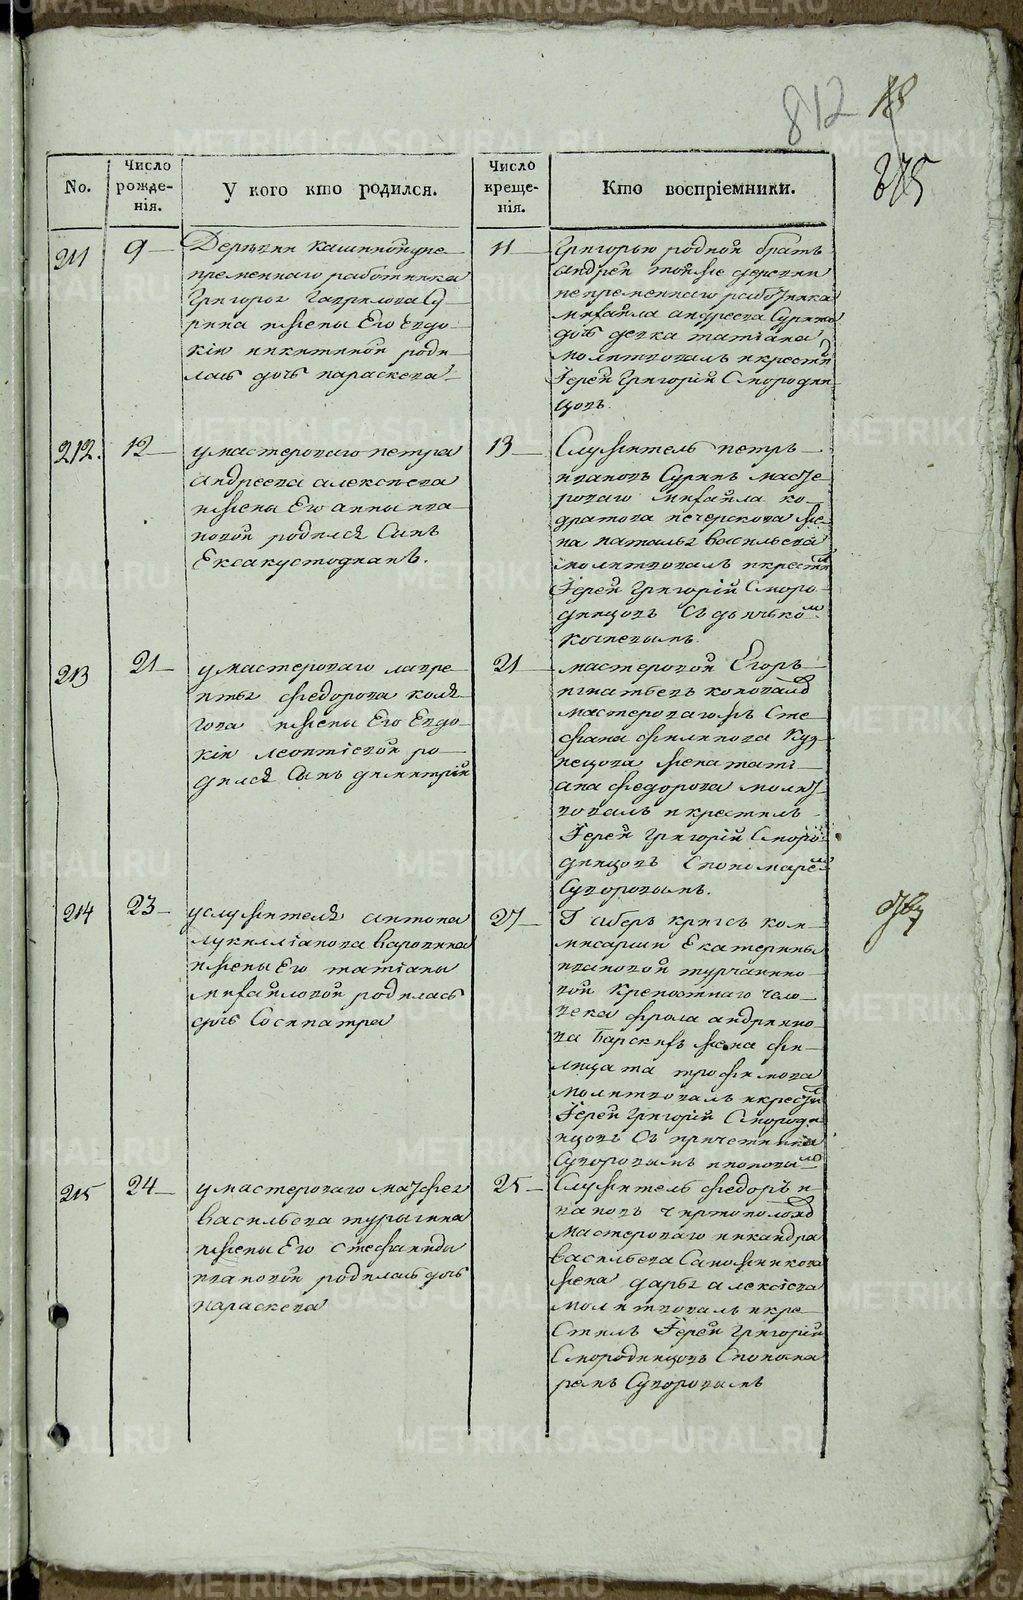 812 18
375
No.
Число рожде-нія.
У кого кто родился.
Число креще-нія.
Кто воспріемники.
211
9
Деревни кашиной не
пременнаго работника
Григорья Гаврилова Су
рина ижены Его Евдо
кіи никитиной роди
лась дочь параскева
11
Григорью родной братъ
андрей тойже деревни
непременнаго работника
михайла андреева Сурина
дочь девка татіана
молитвовалъ икрестил
Іерей Григорій Смородин
цовъ.
212.
12
умастероваго петра
андреева алексѣева
ижены Его анны ива
новой родился Сынъ
Ексакустодианъ.
13
Служитель петръ
ивановъ Суринъ масте
роваго михайла ко
дратова печерскова же
на наталья васильева
молитвовалъ икрестил
Іерей Григорій Сморо
динцовъ Съ дьячьком
213
21
умастероваго лавре
нтья федорова коля
гова ижены Его Евдо
кіи леонтіевой ро
дился Сынъ димитрій
21
мастеровой Егоръ
игнатьевъ коновалов
мастероваго Сте
фана филипова Куз
нецова жена тати
ана федорова молит
вовалъ икрестилъ
Іерей Григорій Сморо
динцовъ Спономарем
Суворовымъ.
214
23
услужителя антона
лукилліанова воронина
ижены Его татіаны
михайловой родилась
дочь Сосипатра
27
Г оберъ кригсъ ком
мисарши Екатерины
ивановой турчанино
вой крепостнаго чело
века фрола андрияно
ва Барскихъ жена фи
лицата трофимова
молитвовалъ икрестил
Іерей Григорій Смороди
нцовъ Съ причетника
Суворовымъ ипоповым
215
24
умастероваго матфея
васильева турыгина
ижены Его стефаниды
ивановой родилась дочь
параскева
25
Служитель федоръ и
вановъ чертополохов
мастероваго никандра
васильева Сапожникова
жена дарья алексіева
молитвовалъ икре
стилъ Іерей Григорій
СмородинцовъСпонома
ремъ Суворовымъ
METRIKI.GASO-URAL.RU